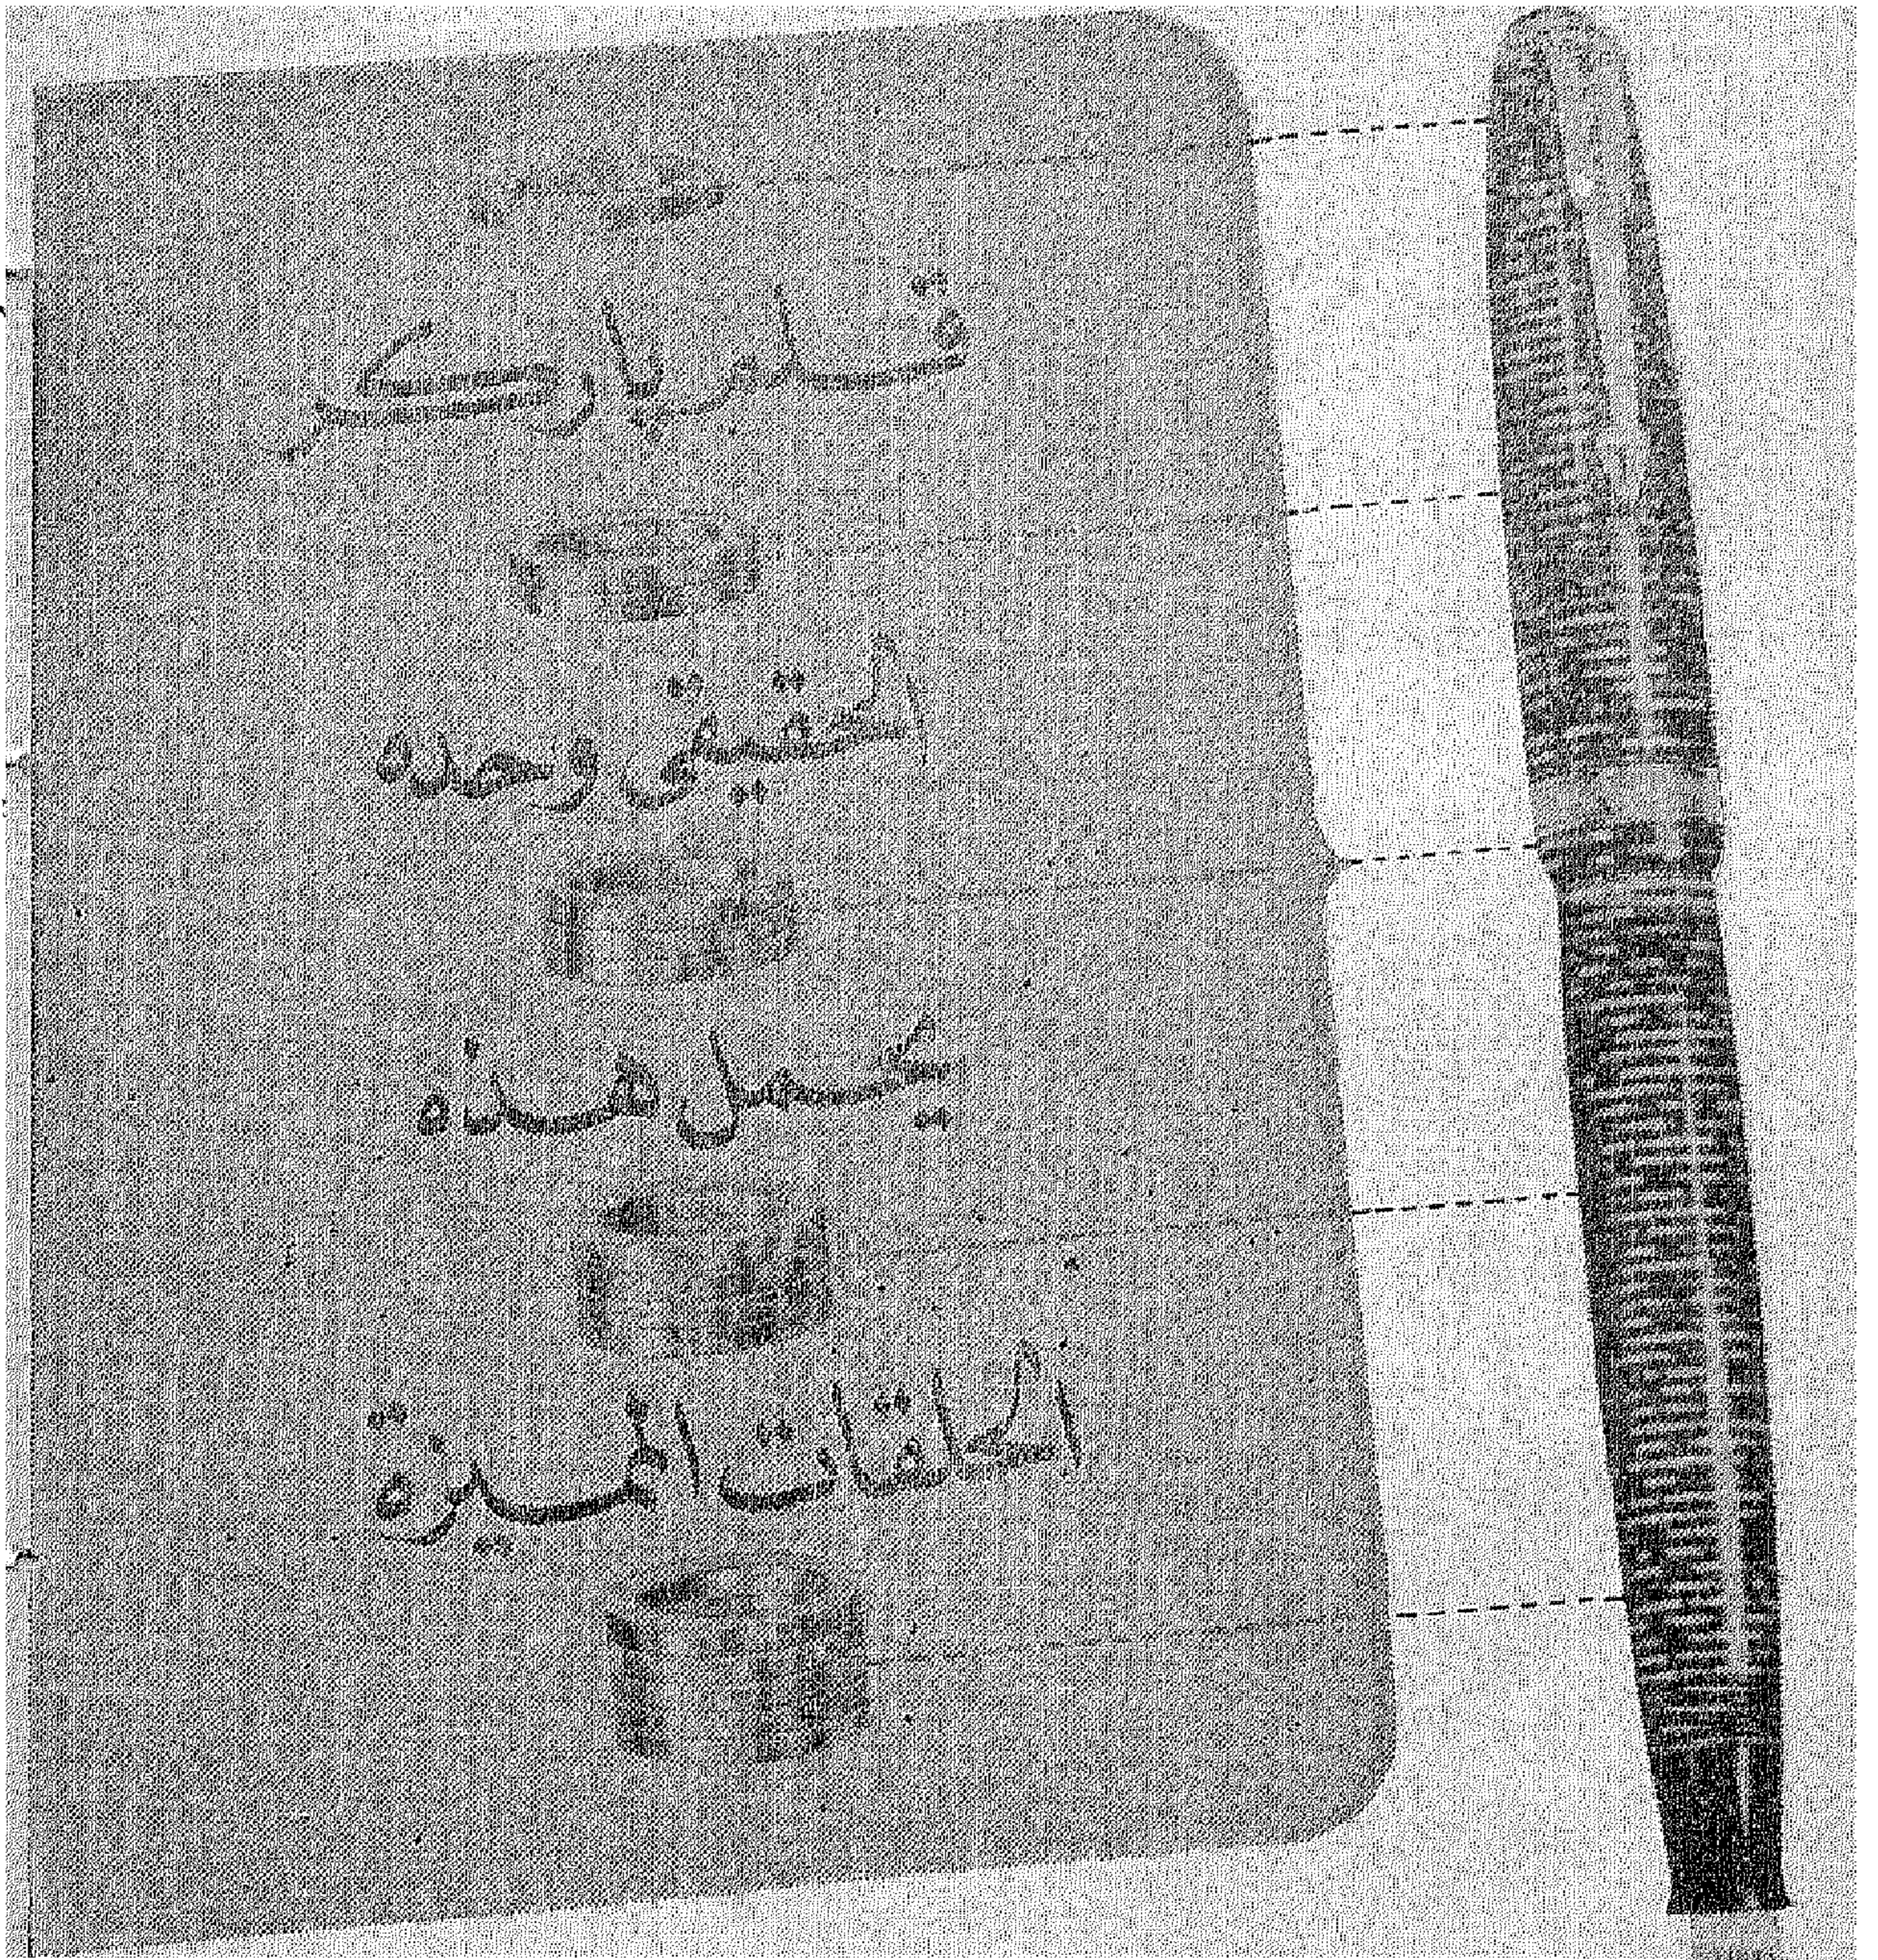 قلم باركر
الحقيقي وحده
يحمل هذه
الحلقات المميزة